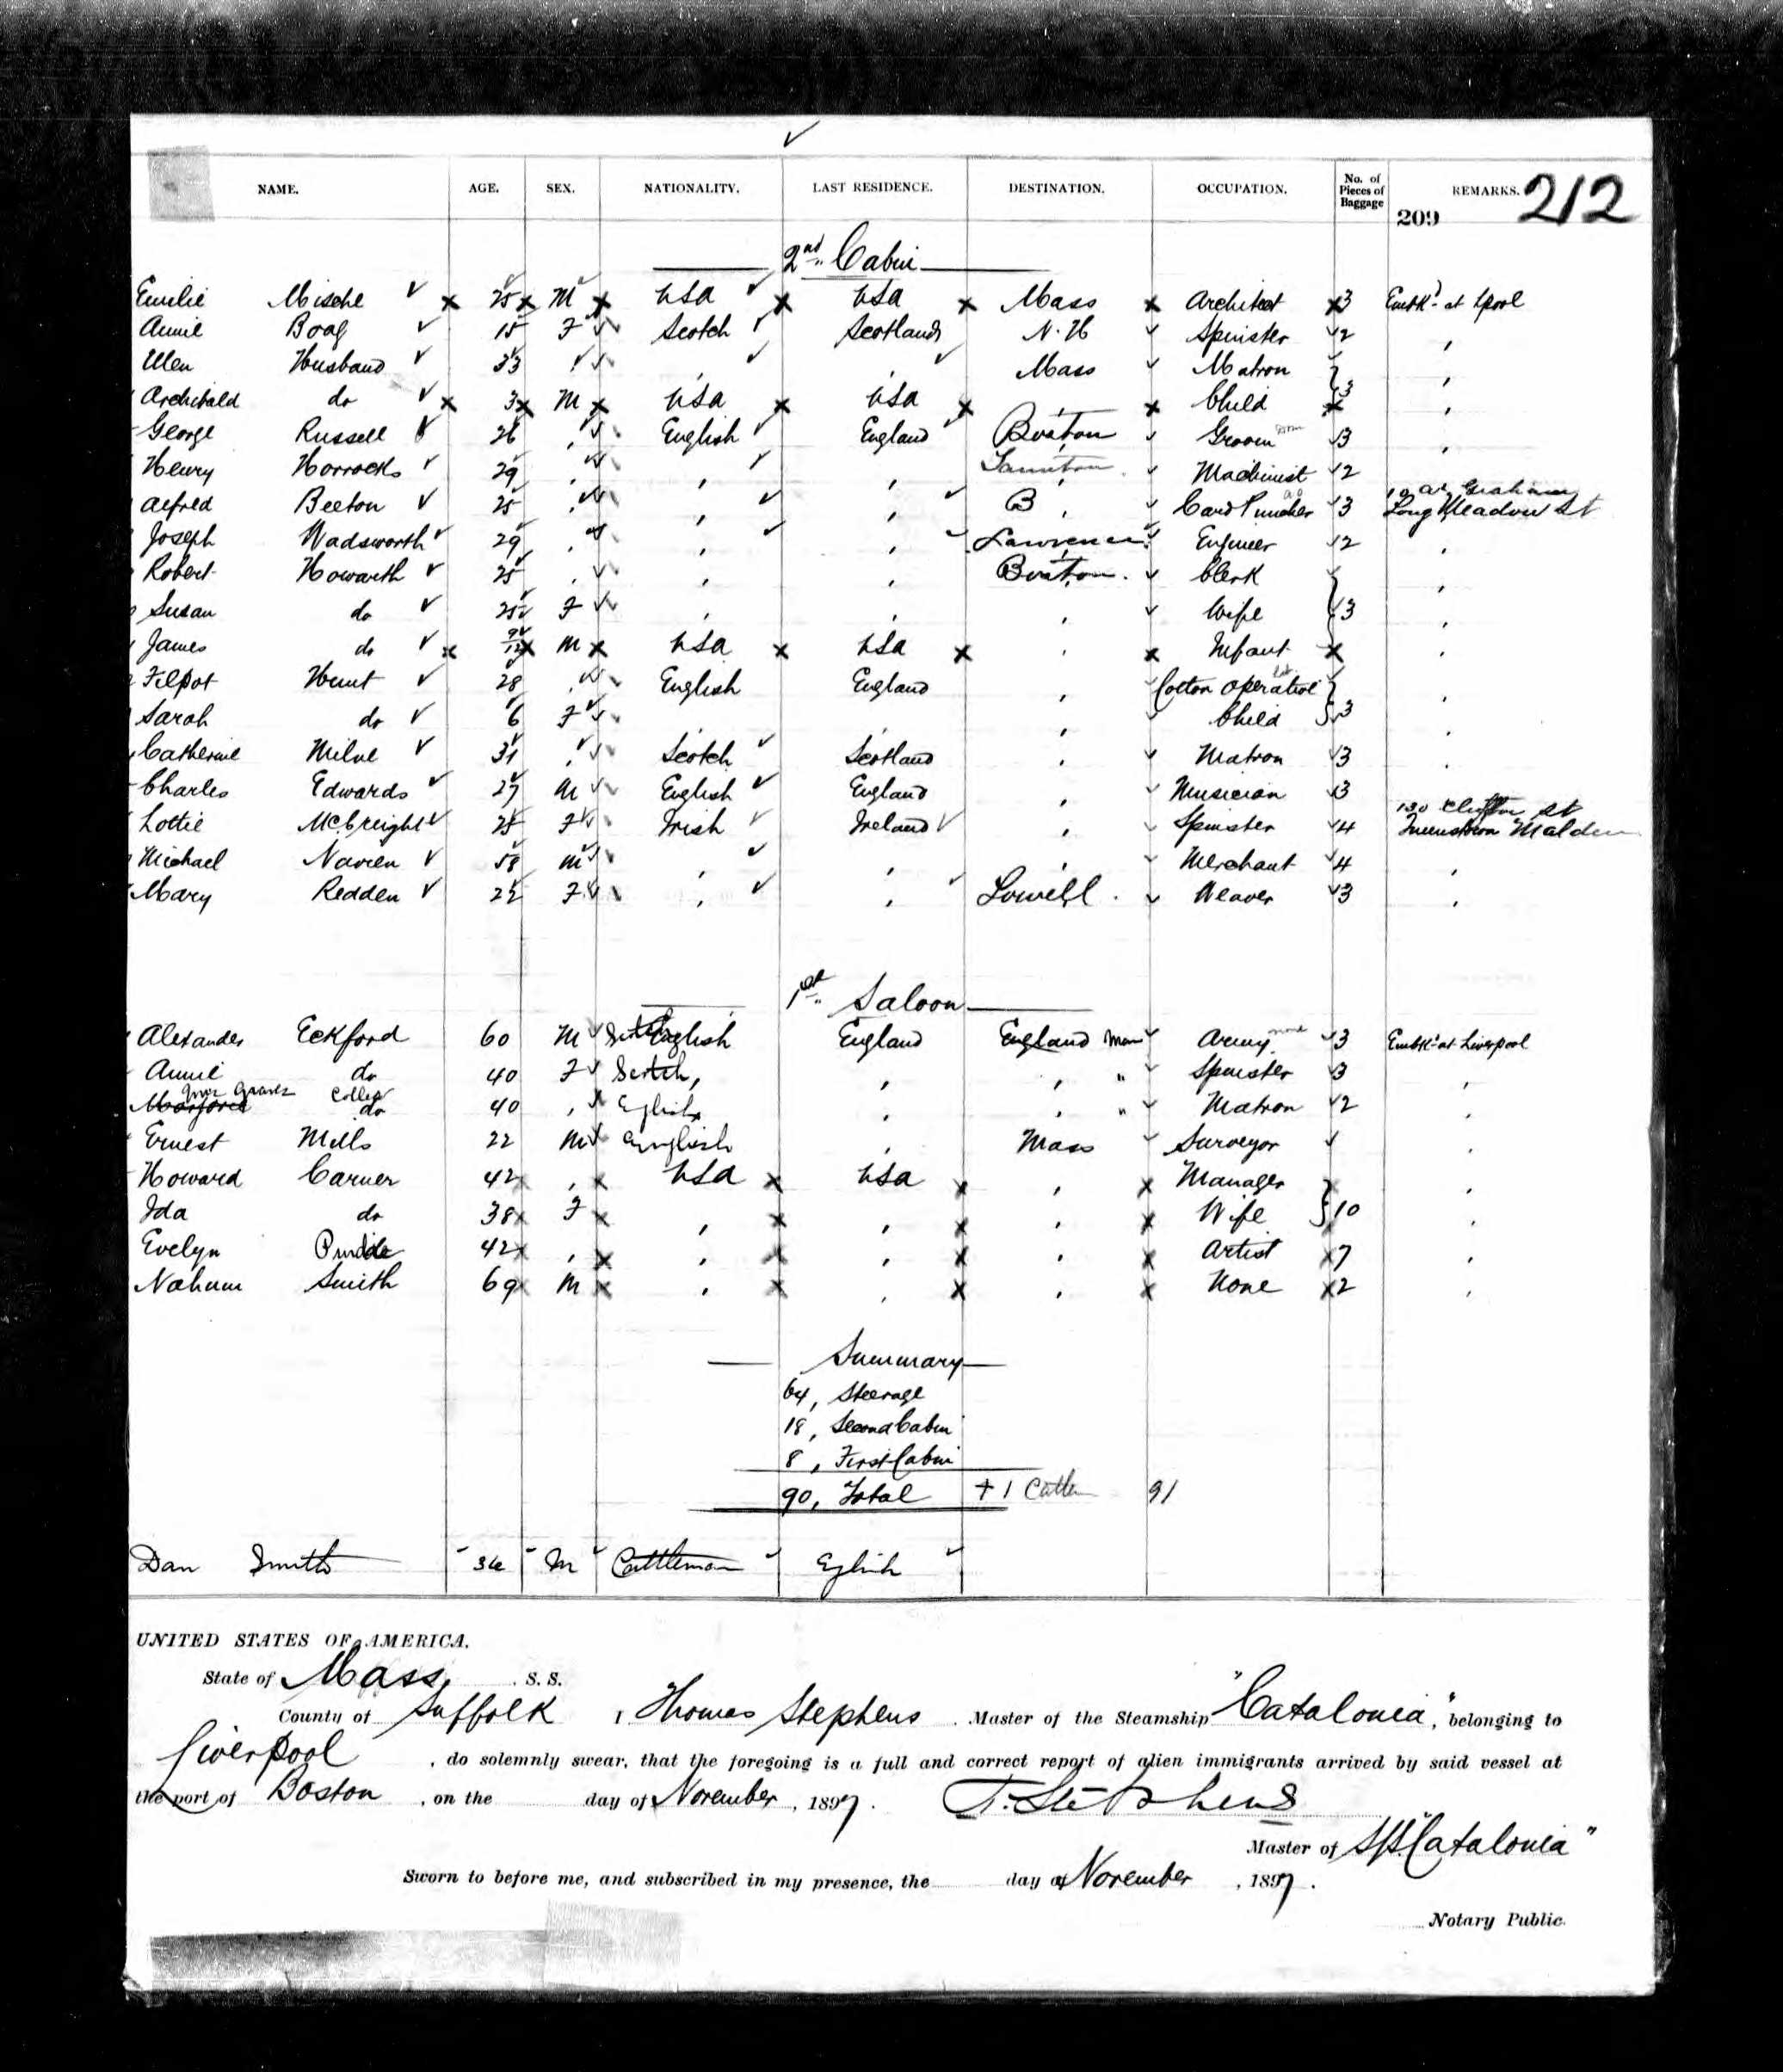 NAME. AGE. SEX. NATIONALITY. LAST RESIDENCE. DESTINATION. OCCUPATION. No. of Pieces of Baggage REMARKS. 212
209
2nd Cabin
Emilie Mische 25 M USA USA Mass Architect 3 Embkd at Lpool
Annie Boag 18 F Scotch Scotland N.H Spinster 2 "
Ellen Husband 33 " " " Mass Matron
Archibald do 3 M USA USA " Child 3 "
George Russell 26 " English England Boston Groom 3 "
Henry Horrocks 29 " " " Taunton Machinist 2
Alfred Beeton 25 " " " B " Card Puncher 3 Graham Long Meadow St
Joseph Wadsworth 29 " " " Lawrence Engineer 2 "
Robert Howarth 25 " " " Boston. Clerk "
Susan do 25 F " " " Wife 3 "
James do 9/12 M USA USA " Infant "
Filpot Hunt 28 " English England " Cotton Operative "
Sarah do 6 F " " " Child 3 "
Catherine Milne 31 " Scotch Scotland " Matron 3 "
Charles Edwards 27 M English England " Musician 3
Lottie McCreight 25 F Irish Ireland " Spinster 4 130 Clifton St Queenstown Malden
Michael Navien 58 M " " " Merchant 4 "
Mary Redden 22 F " " Lowell. Weaver 3 "
1st Saloon
Alexander Eckford 60 M English England England Army 3 Embkd at Liverpool
Annie do 40 F Scotch, " " " Spinster 3 "
Mrs Graves Collier
do 40 " English " " " Matron 2 "
Ernest Mills 22 M English " Mass Surveyor "
Howard Carver 42 " USA USA " Manager "
Ida do 38 F " " " Wife 10 "
Evelyn Purdie 42 " " " " Artist 7 "
Nahum Smith 69 M " " " None 2 "
Summary
64, Steerage
18, Second Cabin
8, First Cabin
90, Total + 1 Cattle 91
Dan Smith 36 M Cattleman English
UNITED STATES OF AMERICA.
State of Mass, S. S.
County of Suffolk I Thomas Stephens Master of the Steamship "Catalonia", belonging to
Liverpool, do solemnly swear, that the foregoing is a full and correct report of alien immigrants arrived by said vessel at
the port of Boston, on the day of November, 1897. T. Stephens
Master of S/S "Catalonia"
Sworn to before me, and subscribed in my presence, the day of November, 1897.
Notary Public.